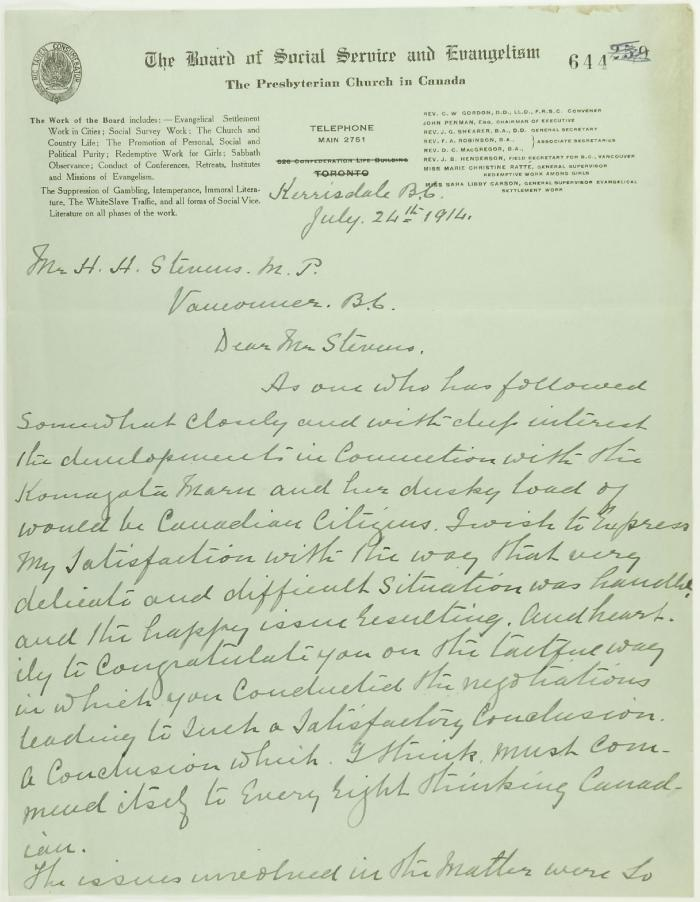 The Board of Social Service and Evangelism
The Presbyterian Church in Canada
644 259
The Work of the Board includes:—Evangelical Settlement
Work in Cities; Social Survey Work: The Church and
Country Life; The Promotion of Personal, Social and
Political Purity; Redemptive Work for Girls; Sabbath
Observance; Conduct of Conferences, Retreats, Institutes
and Missions of Evangelism.
The Suppression of Gambling, Intemperance, Immoral Litera-
ture, The WhiteSlave Traffic, and all forms of Social Vice.
Literature on all phases of the work.
TELEPHONE
MAIN 2751
626 CONFEDERATION LIFE BUILDING
TORONTO
REV. C. W. GORDON, D.D., LL.D., F.R.S.C. CONVENER
JOHN PENMAN, ESQ. CHAIRMAN OF EXECUTIVE
REV. J. G. SHEARER, B.A., D.D. GENERAL SECRETARY
REV. F. A. ROBINSON, B.A.,
REV. D. C. MACGREGOR, B.A., } ASSOCIATE SECRETARIES
REV. J. S. HENDERSON, FIELD SECRETARY FOR B.C., VANCOUVER
MISS MARIE CHRISTINE RATTE, GENERAL SUPERVISOR
REDEMPTIVE WORK AMONG GIRLS
MISS SARA LIBBY CARSON, GENERAL SUPERVISOR EVANGELICAL
SETTLEMENT WORK
Kerrisdale B.C.
July. 24th 1914.
Mr H. H. Stevens. M. P.
Vancouver. B.C.
Dear Mr Stevens.
As one who has followed
somewhat closely and with deep interest
the developments in connection with the
Komagata Maru and her dusky load of
would be Canadian Citizens. I wish to Express
my satisfaction with the way that very
delicate and difficult situation was handled
and the happy issue resulting. And heart-
ily to Congratulate you on the tactful way
in which you Conducted the negotiations
leading to such a satisfactory Conclusion.
A Conclusion which. I think, must com-
mend itself to Every right thinking Canad-
ian.
The issues involved in the Matter were so